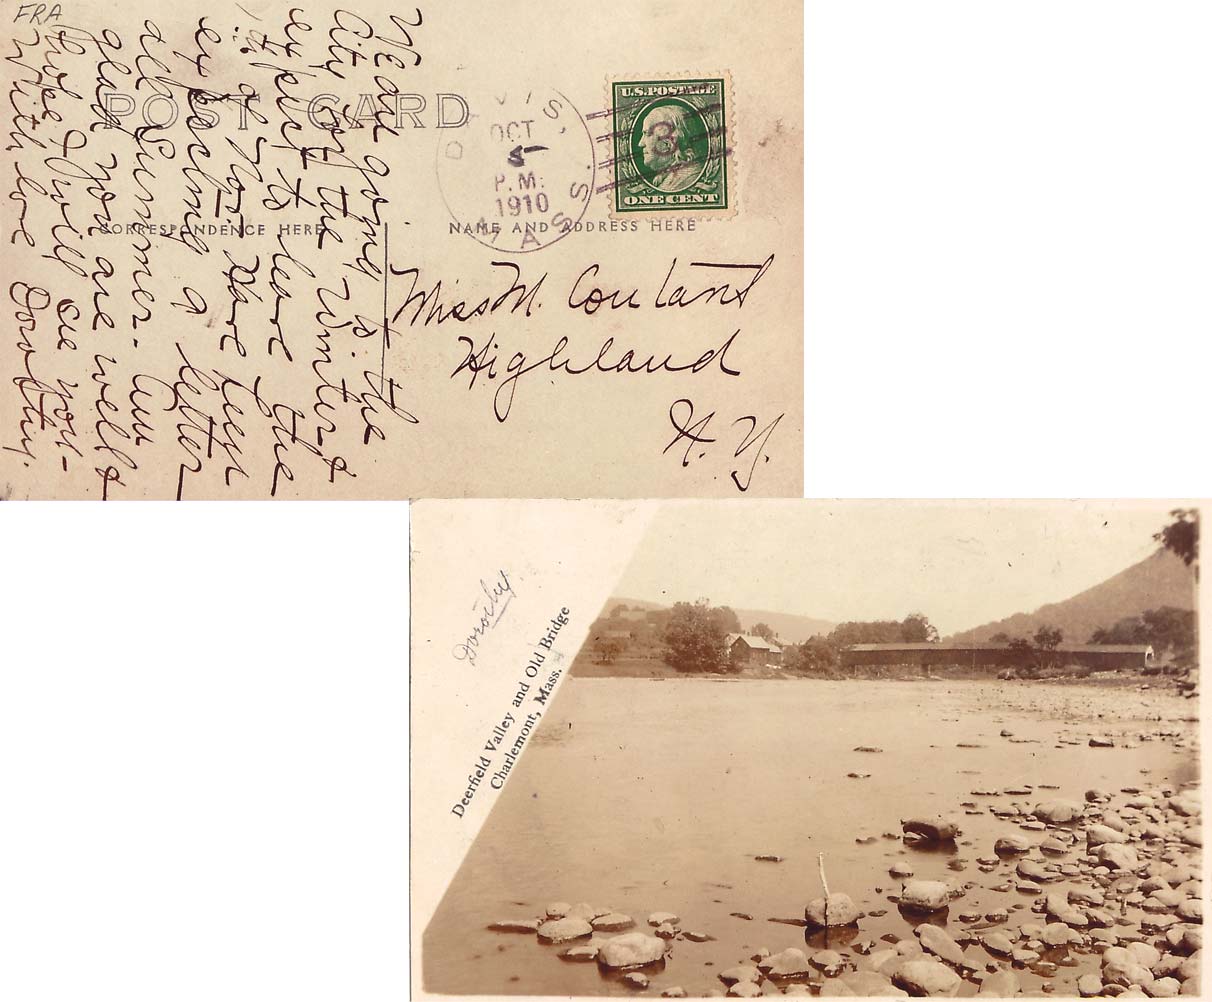 FRA
POST CARD
CORRESPONDENCE HERE
NAME AND ADDRESS HERE
U.S. POSTAGE
ONE CENT
3
DAVIS.
OCT
5
P.M.
1910
MASS.
We are going to the
City for the winter &
expect to leave the
of Nov. Have been
expecting a letter
all Summer. Am
glad you are well &
hope I will see you -
With love Dorothy.
Miss M. Coutant
Highland
N. Y.
Dorothy
Deerfield Valley and Old Bridge
Charlemont, Mass.